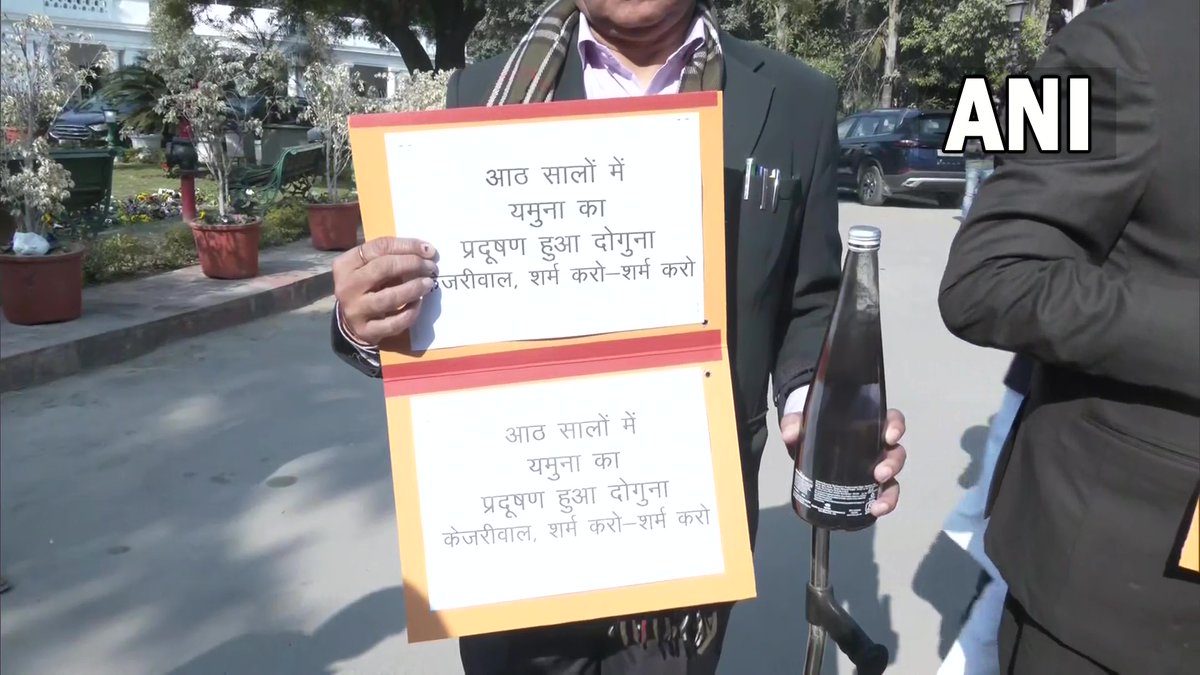 ANI
आठ सालों में
यमुना का
प्रदूषण हुआ दोगुना
केजरीवाल, शर्म करो–शर्म करो
आठ सालों में
यमुना का
प्रदूषण हुआ दोगुना
केजरीवाल, शर्म करो–शर्म करो